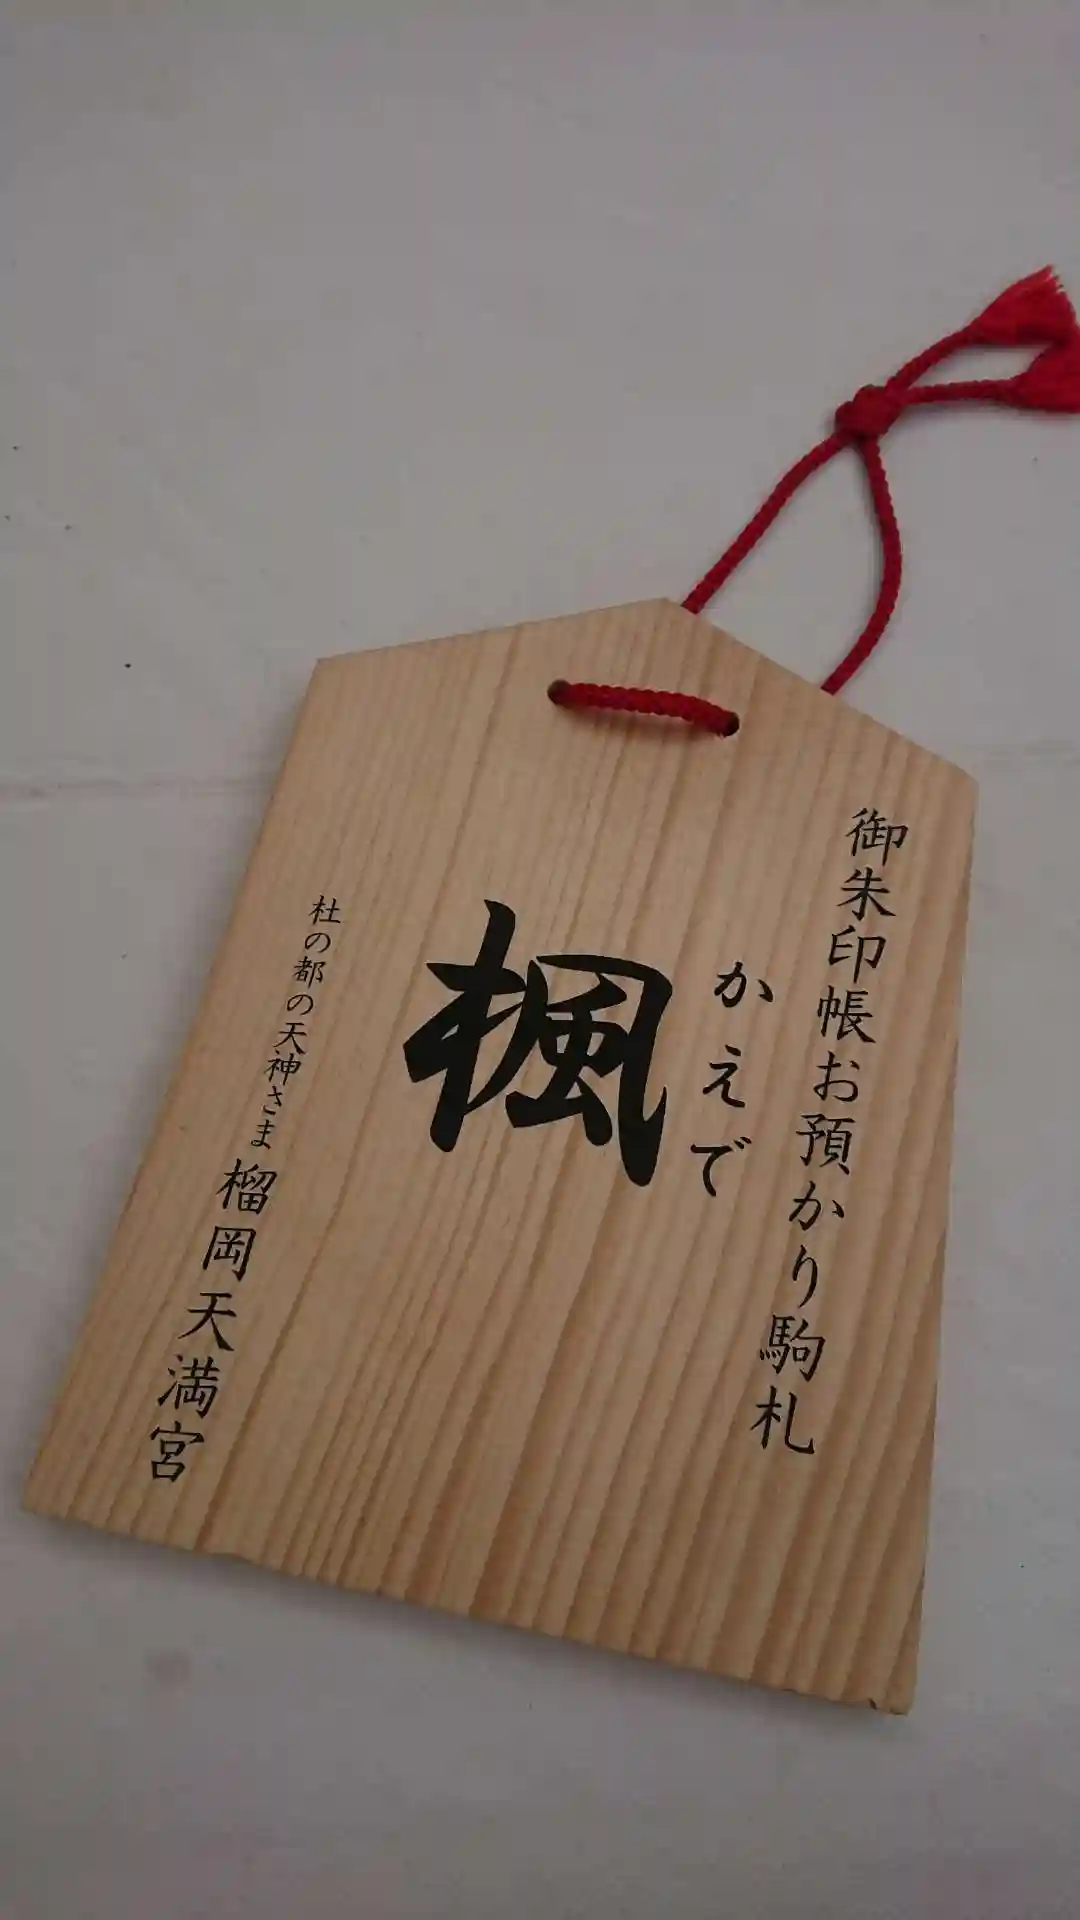 御朱印帳お預かり駒札
かえで
楓
杜の都の天神さま 榴岡天満宮